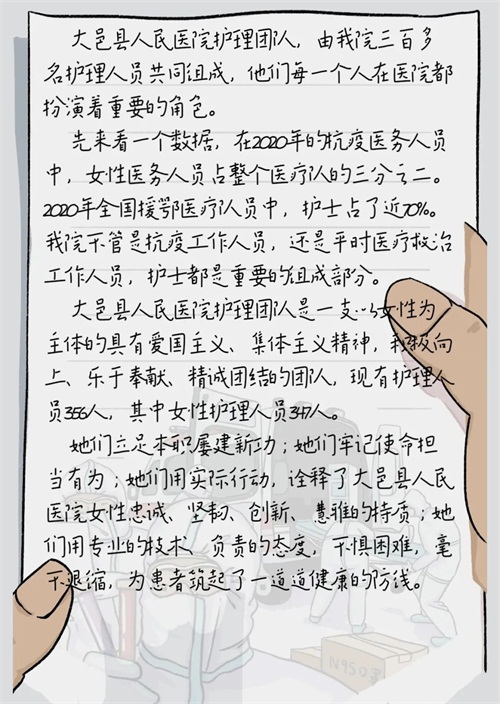 大邑县人民医院护理团队，由我院三百多
名护理人员共同组成，他们每一个人在医院都
扮演着重要的角色。
先来看一个数据，在2020年的抗疫医务人员
中，女性医务人员占整个医疗队的三分之二。
2020年全国援鄂医疗队员中，护士占了近70%。
我院不管是抗疫工作人员，还是平时医疗救治
工作人员，护士都是重要的组成部分。
大邑县人民医院护理团队是一支以女性为
主体的具有爱国主义、集体主义精神，积极向
上、乐于奉献、精诚团结的团队，现有护理人
员356人，其中女性护理人员347人。
她们立足本职屡建新功；她们牢记使命担
当有为；她们用实际行动，诠释了大邑县人民
医院女性忠诚、坚韧、创新、慧雅的特质；她
们用专业的技术、负责的态度，不惧困难，毫
不退缩，为患者筑起了一道道健康的防线。